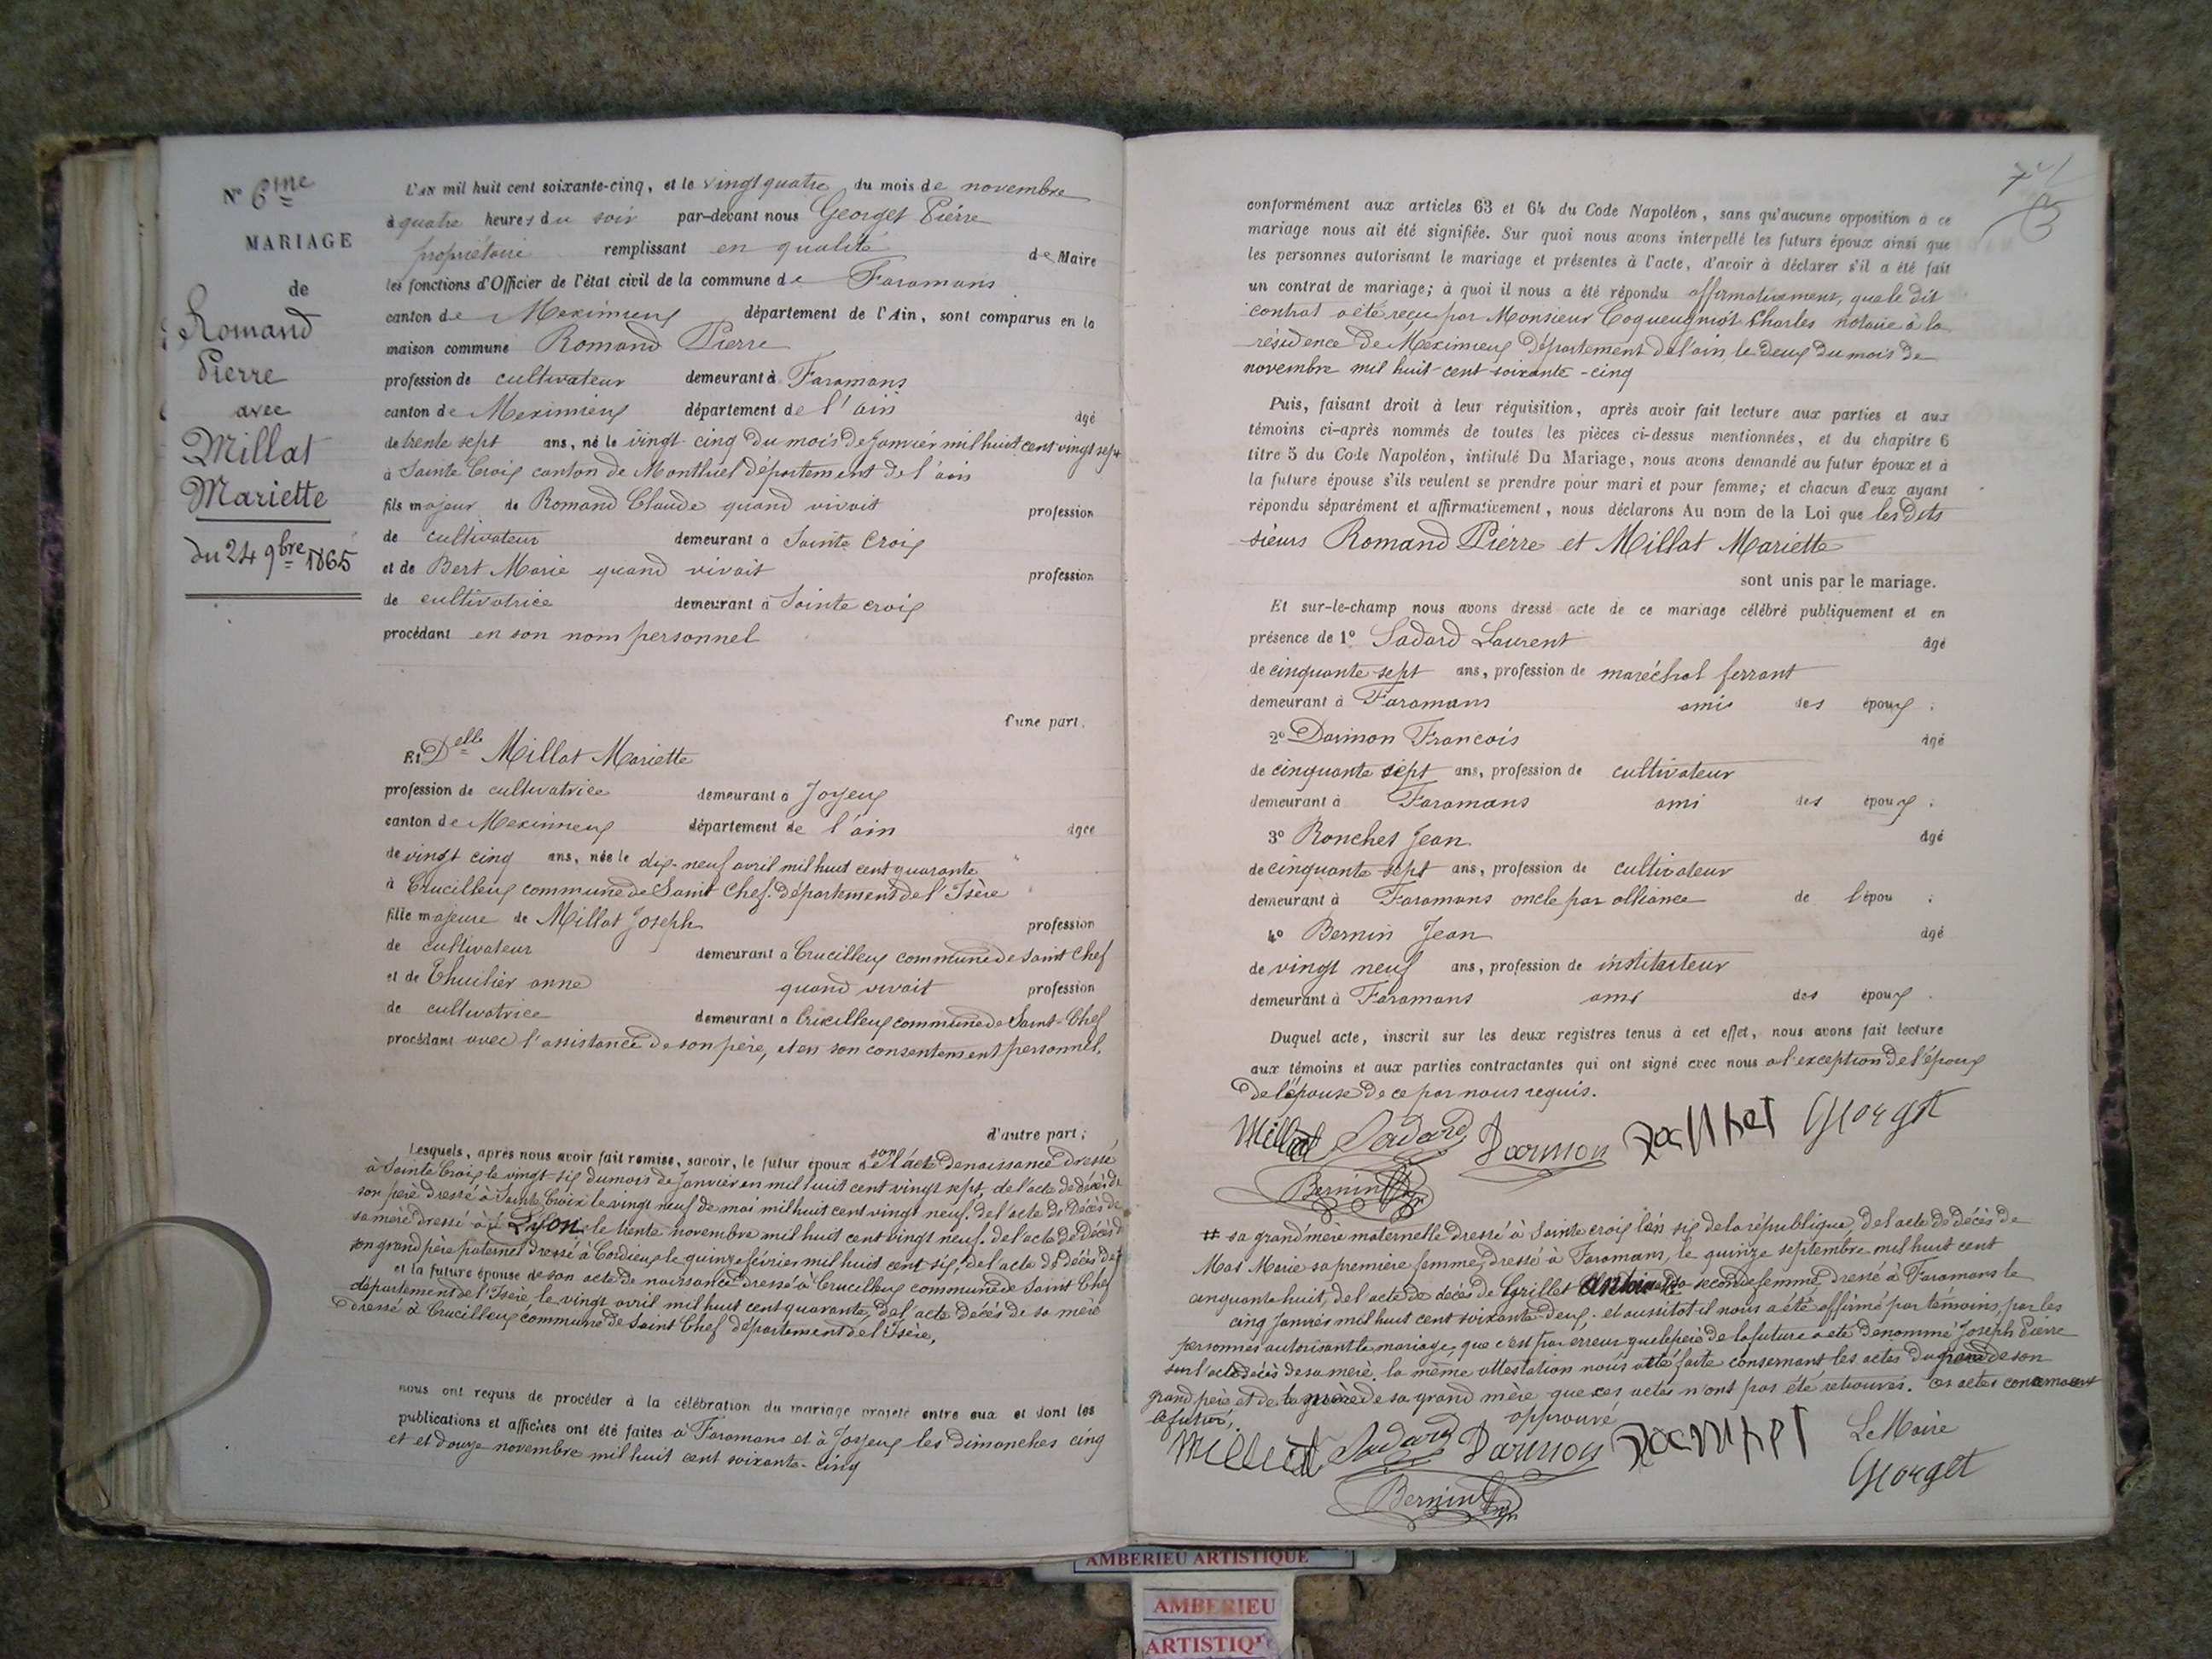 N° 6me
MARIAGE
de
Romand
Pierre
avec
Millat
Mariette
du 24 9bre 1865
L'AN mil huit cent soixante-cinq, et le vingt quatre du mois de novembre
à quatre heures du soir par-devant nous Georget Pierre
propriétaire remplissant en qualité de Maire
les fonctions d'Officier de l'état civil de la commune de Faramans
canton de Meximieux département de l'Ain, sont comparus en la
maison commune Romand Pierre
profession de cultivateur demeurant à Faramans
canton de Meximieux département de l'ain âgé
de trente sept ans, né le vingt-cinq du mois de Janvier mil huit cent vingt sept
à Sainte Croix canton de Montluel département de l'ain
fils majeur de Romand Claude quand vivait profession
de cultivateur demeurant à Sainte Croix
et de Bert Marie quand vivait profession
de cultivatrice demeurant à Sainte croix
procédant en son nom personnel
d'une part.
Et Delle Millat Mariette
profession de cultivatrice demeurant à Joyeux
canton de Meximieux département de l'ain âgée
de vingt cinq ans, née le dix-neuf avril mil huit cent quarante
à Crucilleux commune de Saint Chef. département de l'Isère
fille majeure de Millat Joseph profession
de cultivateur demeurant à Crucilleux commune de Saint Chef
et de Thuilier anne quand vivait profession
de cultivatrice demeurant à Crucilleux commune de Saint-Chef
procédant avec l'assistance de son père, et en son consentement personnel,
d'autre part;
Lesquels, après nous avoir fait remise, savoir, le futur époux de son l'acte de naissance dressé
à Sainte Croix le vingt-six du mois de Janvier en mil huit cent vingt sept, de l'acte de décès de
son père dressé à Sainte Croix le vingt neuf de mai mil huit cent vingt neuf. del'acte de Décès de
sa mère dressé à Lyon le trente novembre mil huit cent vingt neuf. de l'acte de Décès de
son grand père paternel dressé à Cordieux le quinze février mil huit cent six, del'acte de décès de #
et la future épouse de son acte de naissance dressé à Crucilleux commune de Saint Chef
département de l'Isère le vingt avril mil huit cent quarante, del'acte décès de sa mère
dressé à Crucilleux commune de Saint Chef département del'Isère,
nous ont requis de procéder à la célébration du mariage projeté entre eux et dont les
publications et affiches ont été faites à Faramans et à Joyeux les dimanches cinq
et et douze novembre mil huit cent soixante-cinq
conformément aux articles 63 et 64 du Code Napoléon, sans qu'aucune opposition à ce
mariage nous ait été signifiée. Sur quoi nous avons interpellé les futurs époux ainsi que
les personnes autorisant le mariage et présentes à l'acte, d'avoir à déclarer s'il a été fait
un contrat de mariage; à quoi il nous a été répondu affirmativement, que le dit
contrat a été reçu par Monsieur Coqueugniot Charles notaire à la
résidence de Meximieux Département de l'ain, le deux du mois de
novembre mil huit-cent soixante-cinq
Puis, faisant droit à leur réquisition, après avoir fait lecture aux parties et aux
témoins ci-après nommés de toutes les pièces ci-dessus mentionnées, et du chapitre 6
titre 5 du Code Napoléon, intitulé Du Mariage, nous avons demandé au futur époux et à
la future épouse s'ils veulent se prendre pour mari et pour femme; et chacun d'eux ayant
répondu séparément et affirmativement, nous déclarons Au nom de la Loi que les Dits
sieurs Romand Pierre et Millat Mariette
sont unis par le mariage.
Et sur-le-champ nous avons dressé acte de ce mariage célébré publiquement et en
présence de 1° Sadard Laurent âgé
de cinquante-sept ans, profession de maréchal ferrant
demeurant à Faramans ami des époux ;
2° Darmon Francois âgé
de cinquante sept ans, profession de cultivateur
demeurant à Faramans ami des époux ;
3° Ronchet Jean âgé
de cinquante sept ans, profession de cultivateur
demeurant à Faramans oncle par alliance de l'épou ;
4° Bernin Jean âgé
de vingt neuf ans, profession de instituteur
demeurant à Faramans ami des époux .
Duquel acte, inscrit sur les deux registres tenus à cet effet, nous avons fait lecture
aux témoins et aux parties contractantes qui ont signé avec nous a l'exception de l'époux
de l'épouse de ce par nous requis.
Millat Sadard Darmon Georget
Bernin
# sa grand'mère maternelle dressé à Sainte croix l'an six de la république, del'acte de décès de
Mas Marie sa première femme, dressé à Faramans, le quinze septembre mil huit cent
cinquante huit, del'acte de décès de Grillet seconde femme, dressé à Faramans le
cinq Janvier mil huit cent soixante-deux; et aussitot il nous a été affirmé par témoins, par les
personnes autorisant le mariage, que c'est par erreur que le père de la future a été dénommé Joseph Pierre
sur l'acte décès de sa mère, la même attestation nous a été faite consernant les actes du de son
grand père et de la de sa grand mère que ces actes n'ont pas été retrouvés. ces actes concernant
le futur,
approuvé
Millat Sadard Darmon Le Maire
Georget
Bernin
AMBERIEU ARTISTIQUE
AMBERIEU
ARTISTIQUE